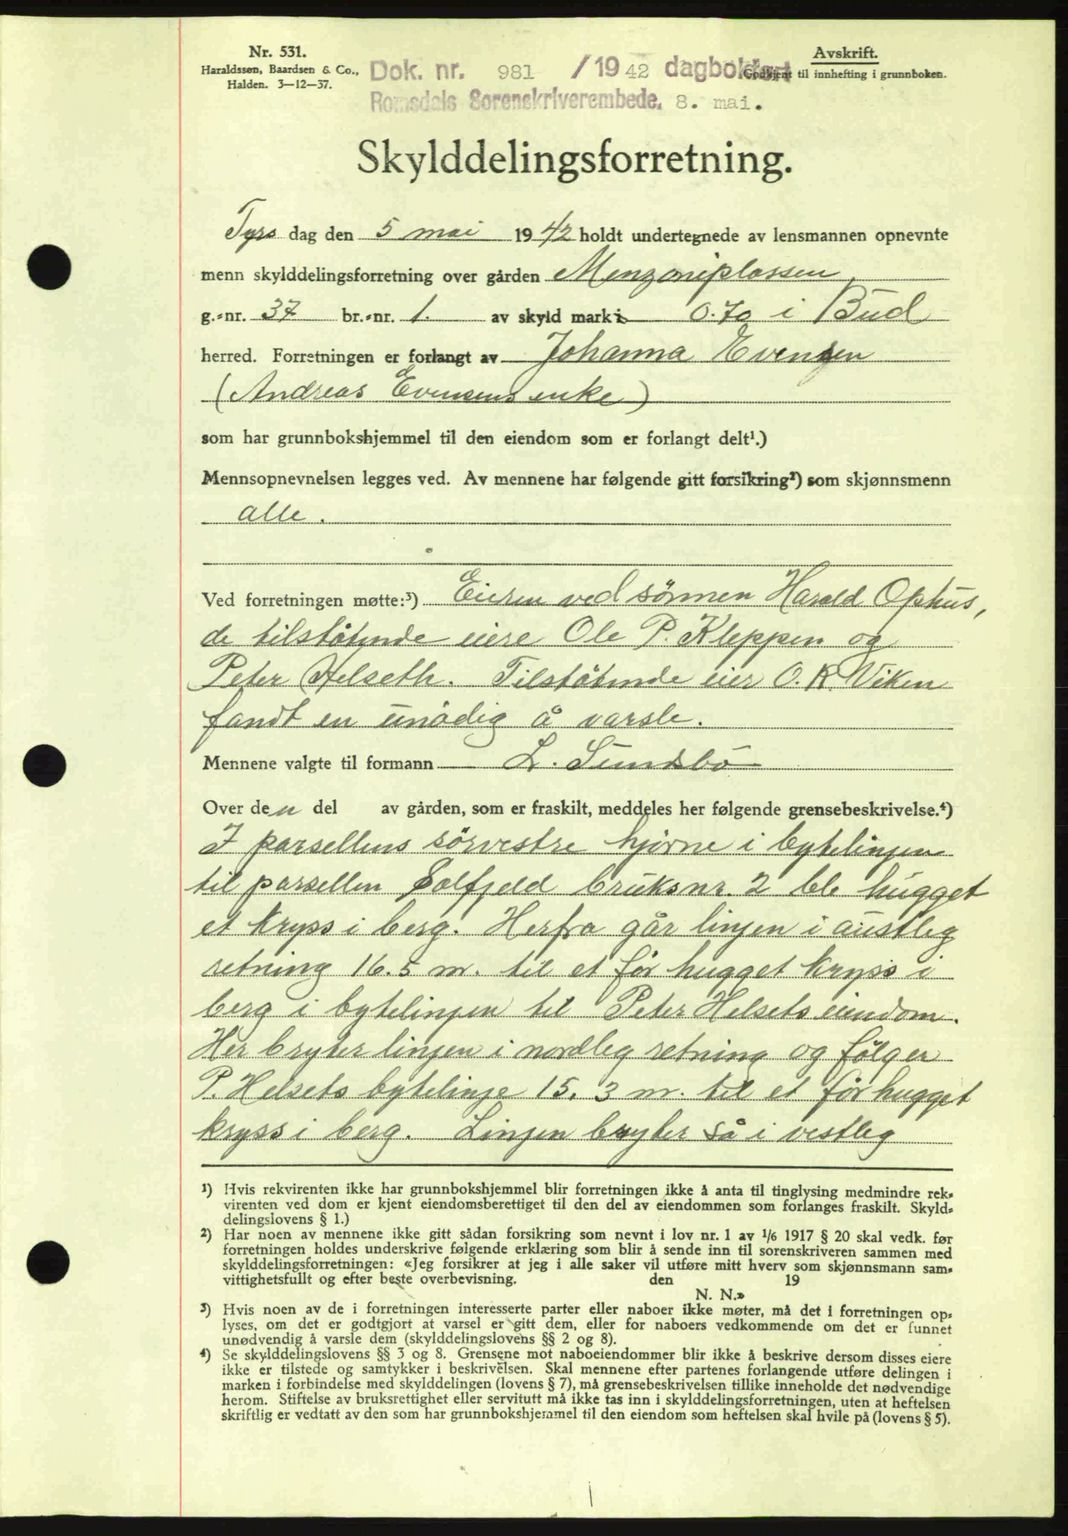 Nr. 531.
Haraldssen, Baardsen & Co.,
Halden. 3—12—37.
Avskrift.
Godkjent til innhefting i grunnboken.
Dok. nr. 981 /19 42 dagbokført
Romsdals Sorenskriverembede. 8. mai.
Skylddelingsforretning.
Tyrs dag den 5 mai 19 42 holdt undertegnede av lensmannen opnevnte
menn skylddelingsforretning over gården Menzoniplassen
g.-nr. 37 br.-nr. 1. av skyld mark 0.70 i Bud
herred. Forretningen er forlangt av Johanna Evensen
(Andreas Evensens enke)
som har grunnbokshjemmel til den eiendom som er forlangt delt¹.)
Mennsopnevnelsen legges ved. Av mennene har følgende gitt forsikring²) som skjønnsmenn
alle.
Ved forretningen møtte:³) Eieren ved sönnen Harald Ophus,
de tilstötende eiere Ole P. Kleppen og
Peter Helseth. Tilstötende eier O. K. Viken
fandt en unödig å varsle.
Mennene valgte til formann L. Sundsbö
Over den del av gården, som er fraskilt, meddeles her følgende grensebeskrivelse.⁴)
I parsellens sörvestre hjörne i bytelinjen
til parsellen Solfjeld bruksnr. 2 ble hugget
et kryss i berg. Herfra går linjen i austleg
retning 16.5 m. til et för hugget kryss i
berg i bytelinjen til Peter Helsets eiendom.
Her bryter linjen i nordleg retning og fölger
P. Helsets bytelinje 15.3 m. til et för hugget
kryss i berg. Linjen bryter så i vestleg
¹) Hvis rekvirenten ikke har grunnbokshjemmel blir forretningen ikke å anta til tinglysing medmindre rek-
virenten ved dom er kjent eiendomsberettiget til den del av eiendommen som forlanges fraskilt. Skyld-
delingslovens § 1.)
²) Har noen av mennene ikke gitt sådan forsikring som nevnt i lov nr. 1 av 1/6 1917 § 20 skal vedk. før
forretningen holdes underskrive følgende erklæring som blir å sende inn til sorenskriveren sammen med
skylddelingsforretningen: «Jeg forsikrer at jeg i alle saker vil utføre mitt hverv som skjønnsmann sam-
vittighetsfullt og efter beste overbevisning. den 19
N. N.»
³) Hvis noen av de i forretningen interesserte parter eller naboer ikke møter, må det i forretningen op-
lyses, om det er godtgjort at varsel er gitt dem, eller for naboers vedkommende om det er funnet
unødvendig å varsle dem (skylddelingslovens §§ 2 og 8).
⁴) Se skylddelingslovens §§ 3 og 8. Grensene mot naboeiendommer blir ikke å beskrive dersom disses eiere
ikke er tilstede og samtykker i beskrivelsen. Skal mennene efter partenes forlangende utføre delingen i
marken i forbindelse med skylddelingen (lovens § 7), må grensebeskrivelsen tillike inneholde det nødvendige
herom. Stiftelse av bruksrettighet eller servitutt må ikke tas inn i skylddelingsforretningen, uten at heftelsen
skriftlig er vedtatt av den som har grunnbokshjemmel til den eiendom som heftelsen skal hvile på (lovens § 5).